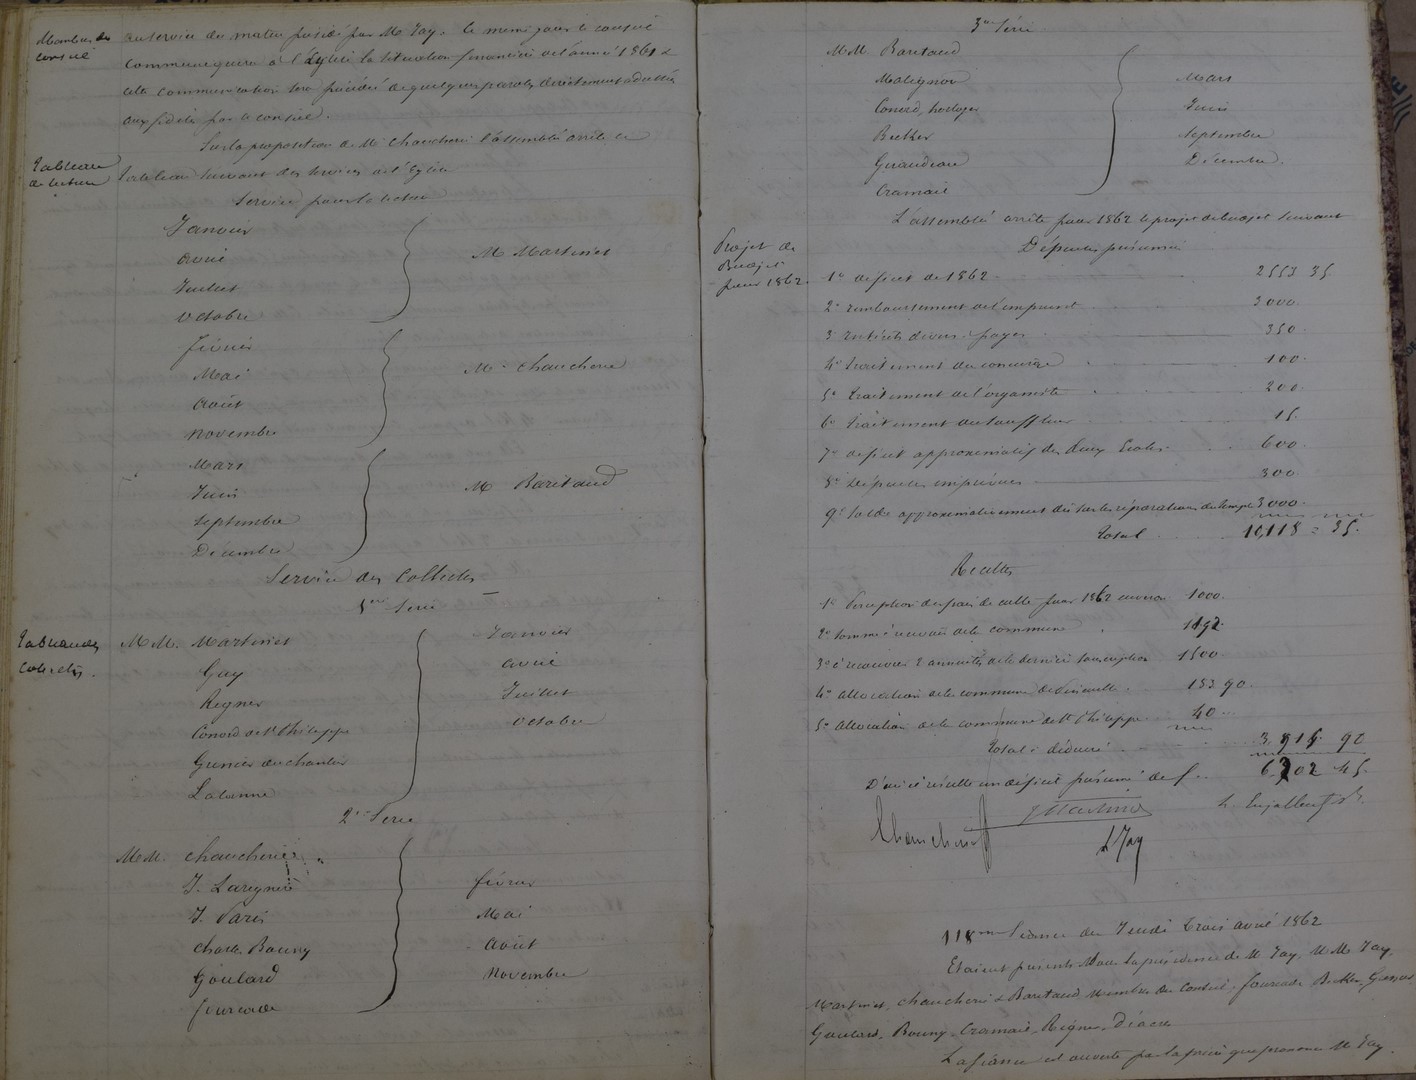 Membres du
conseil
au service du matin présidé par Mr Fay. Le meme jour le conseil
communiquera à l'Eglise la situation financière de l'année 1861 &
cette communication sera précédée de quelques paroles directement adressées
aux fidèles par le conseil.
Sur la proposition de Mr Chaucherie l'assemblée arrête le
Tableau
de lecture
tableau suivant des services de l'Eglise
Service pour la lecture
Janvier
avril
Juillet
octobre
M Martinet
février
Mai
Août
Novembre
Mr Chaucherie
Mars
Juin
Septembre
Décembre
M Baritaud
Service des Collectes
1ere Serie
Tableau des
Collectes.
MM. Martinet
Gay
Regner
Conord de St Philippe
Grenier du chanter
Labanne
Janvier
avril
Juillet
octobre
2e Serie
MM. Chaucherie
J. Laregnere
J. Paris
Charles Bouny
Goulard
fourcade
février
Mai
Août
Novembre
3me Série
MM Baritaud
Malignon
Conord, horloger
Becker
Guiraudeau
Cramail
Mars
Juin
Septembre
Décembre.
L'assemblée arrête pour 1862 le projet de budget suivant
Projet de
Budget
pour 1862
Dépenses présumées
1° deficit de 1862 2553 35
2° remboursement de l'emprunt 3000.
3° intérêts divers à payer 350.
4° traitement du concierge 100.
5° traitement de l'organiste 200
6° traitement du souffleur 15.
7° deficit approximatif des deux Ecoles 600.
8° Dépenses imprévues 300
9° Solde approximativement dû sur les réparations du temple 3000.
Total 10,118 = 35.
Recettes
1° Perception des frais de culte pour 1862 environ 1000.
2° Somme à recevoir de la commune
3° à recouvrer 2 annuités de la dernière souscription 1500.
4° allocation de la commune de 153 90.
5° allocation de la commune de St Philippe 40
Total à déduire 3,915 90
D'où il résulte un déficit présumé de f. 6202 45.
Chaucherie
J Martinet
L Fay
118me Séance du Jeudi trois avril 1862
Etaient présents sous la présidence de M Fay, MM Fay,
Martinet, Chaucherie & Baritaud membres du Conseil, fourcade Becker, Grenier,
Goulard, Bouny, Cramail, Regner, Diacres
La séance est ouverte par la prière que prononce M Fay.